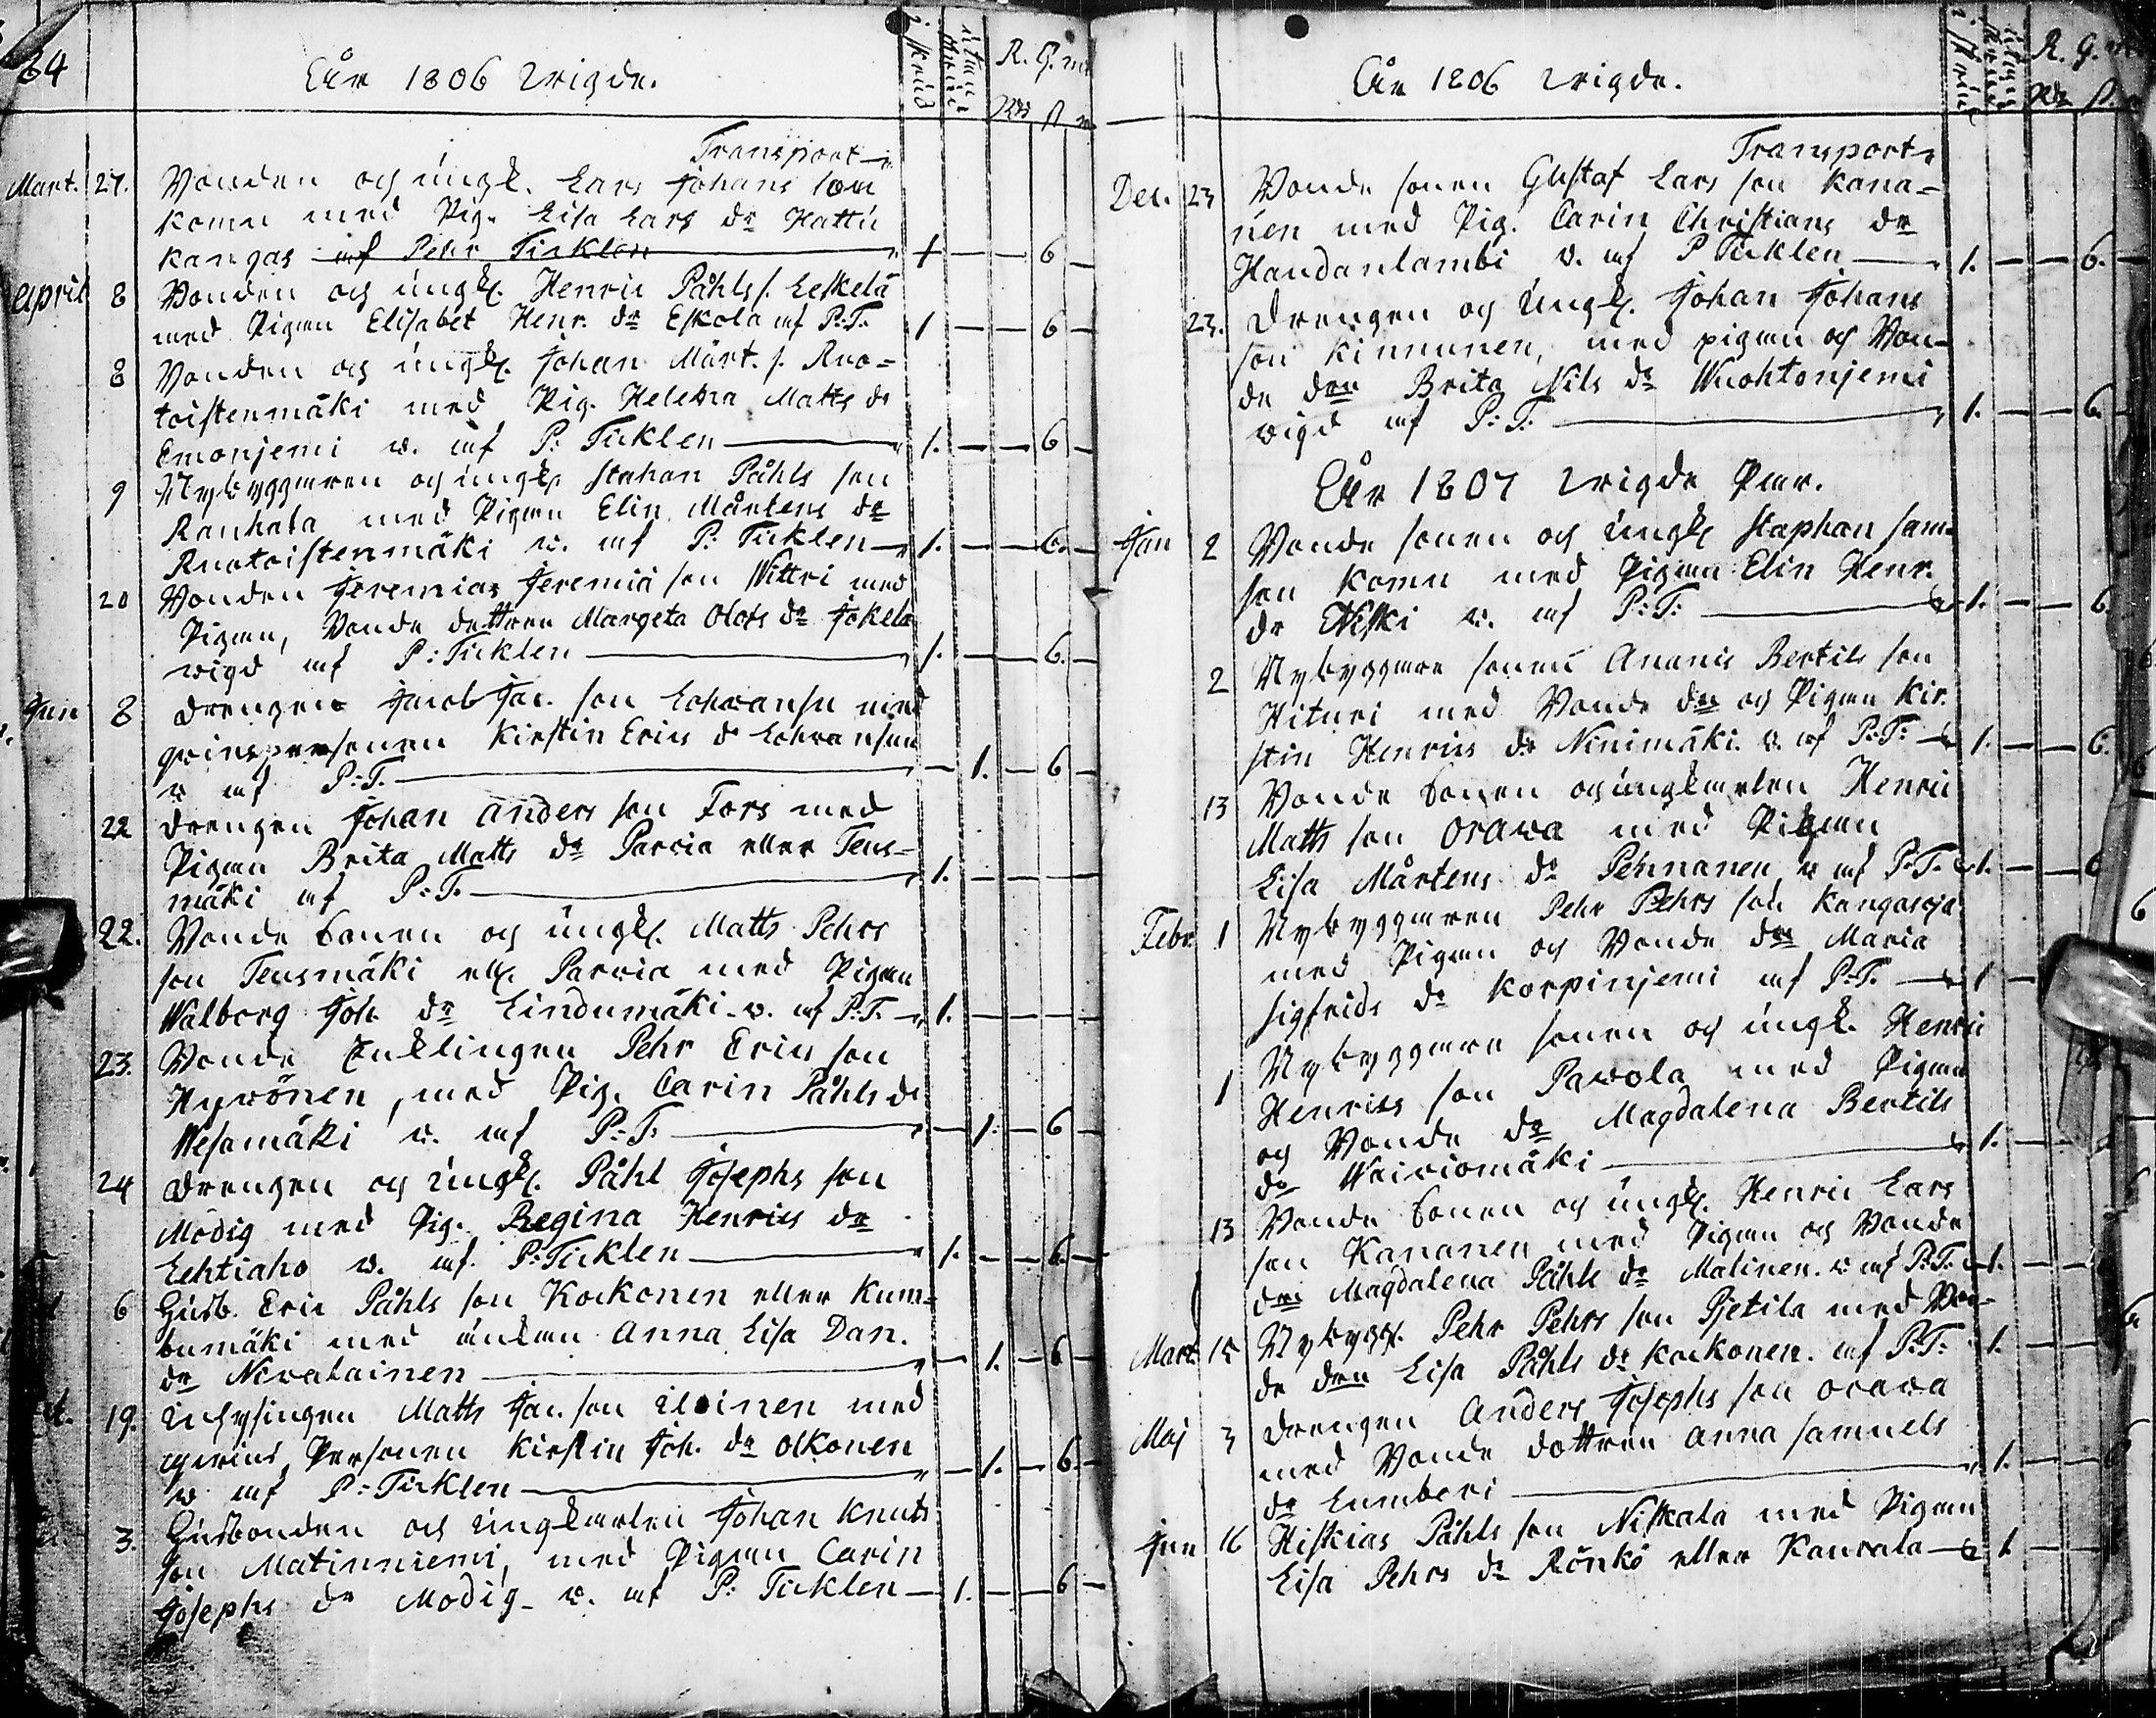 64
År 1806 Vigde.
i skrud
utan skrud
R. G. m
Rdr ß
Transport
Mart. 27. Bonden och ungk. Lars Johans son
Komu med Pig. Lisa Lars dr Hattu
kangas af Pehr Ticklen 1 — — 6 —
April 8 Bonden och ungk. Henric Påhls s. Leskelä
med Pigan Elisabet Henr. dr Eskola af P:T. 1 — — 6 —
8 Bonden och ungk. Johan Mårt. s. Ruo=
toistenmäki med Pig. Helena Matts dr
Emonjemi v. af P: Ticklen 1. — — 6 —
9 Nybyggaren och ungk. Staphan Påhls son
Rauhala med Pigan Elin Mårtens dr
Ruotoistenmäki v. af P: Ticklen 1. — — 6. —
20 Bonden Jeremias Jeremiæ son Wittri med
Pigan, Bonde dottren Margeta Olofs dr Jokela
vigd af P: Ticklen 1. — — 6. —
Jun 8 Drengen Jacob Jac. son Lohvansu med
qvinspersonen Kirstin Erics dr Lohvansuu
v af P:T. — 1. — 6 —
22 Drengen Johan Anders son Fors med
Pigan Brita Matts dr Parvia eller Teus=
mäki af P:T. 1. — — —
22. Bonde Sonen och ungk. Matts Pehrs
son Teusmäki ell. Parvia med Pigan
Walborg Joh. dr Lindumäki v. af P.T. 1. — — —
23. Bonde Enklingen Pehr Erics son
Hyvönen, med Pig. Carin Påhls dr
Wesamäki v. af P:T. — 1. — 6 —
24 Drengen och ungk. Påhl Josephs son
Modig med Pig. Regina Henrics dr
Lehtiaho v. af. P: Ticklen 1. — — 6. —
6 Husb. Eric Påhls son Kockonen eller Kum=
bumäki med änkan Anna Lisa Dan.
dr Nevalainen — 1. — 6 —
19. Inhysingen Matts Jac. son Iloinen med
qvins Personen Kirstin Joh. dr Olkonen
v af P: Ticklen — 1. — 6. —
3. Husbonden och ungkarlen Johan Knuts
son Matinniemi, med Pigan Carin
Josephs dr Modig v. af P: Ticklen — 1. — — 6 —
År 1806 Vigde.
i skrud
utan skrud
R. G. m
Rdr ß
Transport
Dec. 23 Bonde sonen Gustaf Lars son Kana=
nen med Pig. Carin Christians dr
Haudanlambi v. af P Ticklen 1. — — 6. —
23. Drengen och ungk. Johan Johans
son Kinnunen, med pigan och Bon=
de dren Brita Nils dr Wuohtonjemi
vigd af P:T. 1. — — 6. —
År 1807 Vigde Par.
Jan 2 Bonde sonen och ungk Staphan Sam.
son Komu med Pigan Elin Henr.
dr Niski v. af P:T: 1. — — 6
2 Nybyggare sonen Ananis Bertils son
Hituri med Bonde dr och Pigan Kir=
stin Henrics dr Ninimäki v. af P:T: 1. — — 6.
13 Bonde Sonen och ungkarlen Henric
Matts son Orava med Pigan
Lisa Mårtens dr Pehnanen v af P.T. 1. — — 6
Febr 1 Nybyggaren Pehr Pehrs son Kangasoja
med Pigan och Bonde dr Maria
Sigfrids dr Korpinjemi af P:T. 1 —
1 Nybyggare sonen och ungk. Henric
Henrics son Pavola med Pigan
och Bonde dr Magdalena Bertils
dr Waiviomäki 1. —
13 Bonde Sonen och ungk. Henric Lars
son Kananen med Pigan och Bonde
dr Magdalena Påhls dr Malinen v af P.T. 1. —
Mart 15 Nybygg. Pehr Pehrs son Pjetila med Bon=
de dren Lisa Påhls dr Kockonen. af P.T. 1. —
Maj 3 Drengen Anders Josephs son Orava
med Bonde dottren Anna Samuels
dr Lumberi 1. —
Jun 16 Hiskias Påhls son Niskala med Pigan
Lisa Pehrs dr Rönkö eller Kaurala 1 —